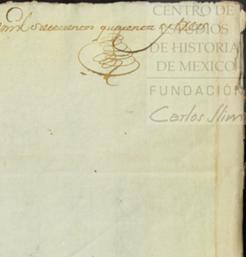 mil Setecientos quarenta y tres
CENTRO DE
ESTUDIOS
DE HISTORIA
DE MEXICO
FUNDACIÓN
Carlos Slim